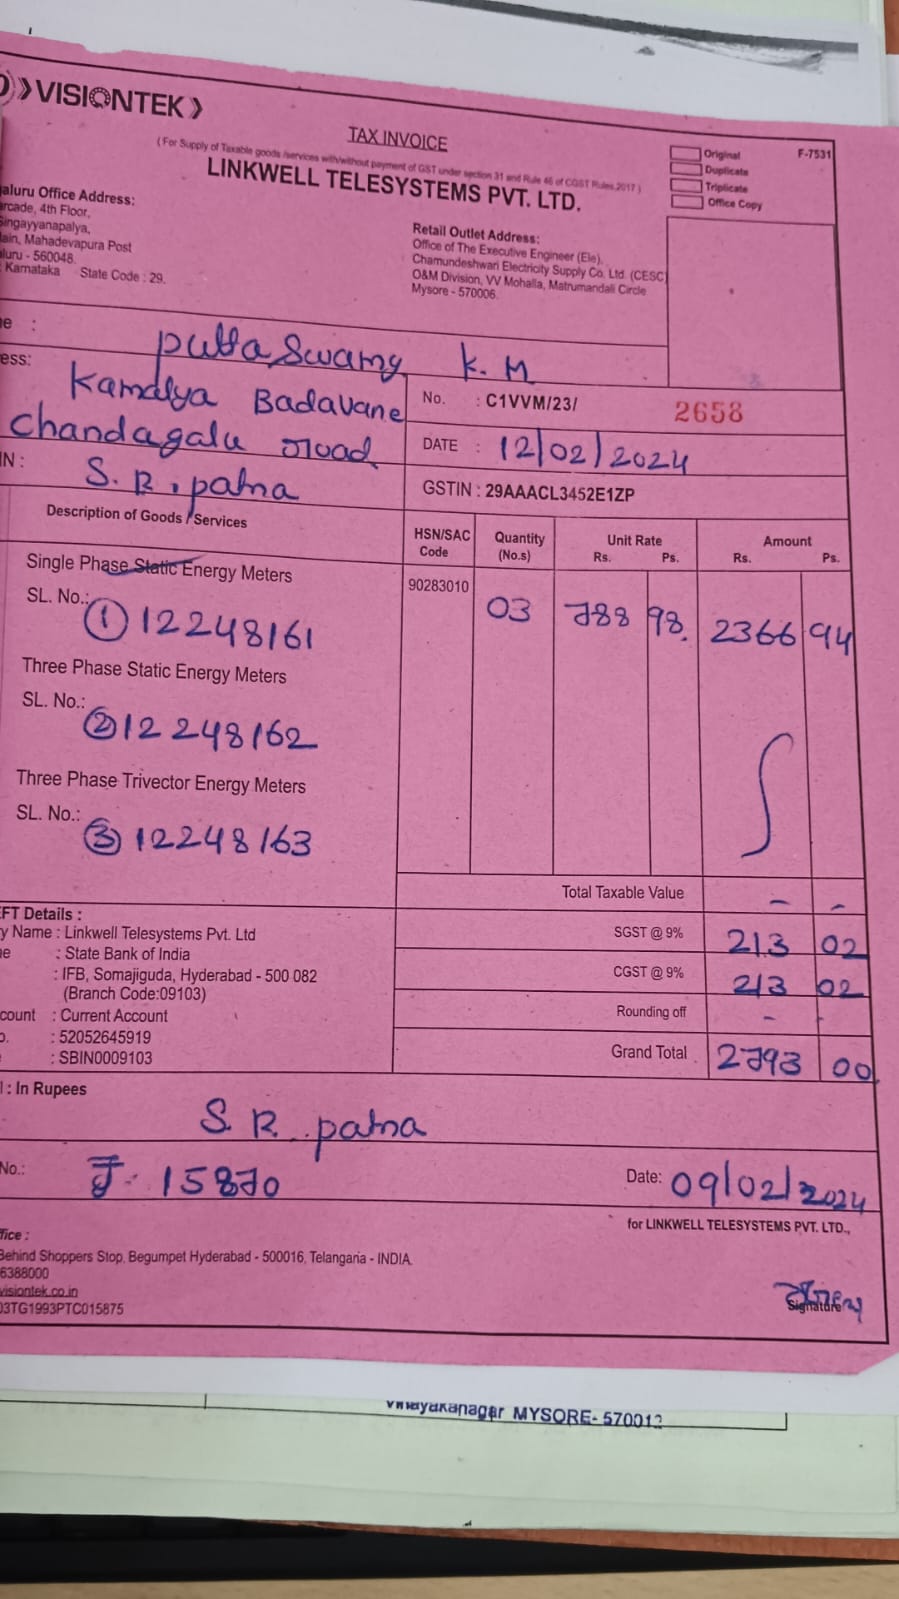 VISIONTEK
TAX INVOICE
( For Supply of Taxable goods /services with/without payment of GST under section 31 and Rule 46 of CGST Rules,2017 )
LINKWELL TELESYSTEMS PVT. LTD.
Original
F-7531
Duplicate
Triplicate
Office Copy
aluru Office Address:
arcade, 4th Floor,
Singayyanapalya,
lain, Mahadevapura Post
aluru - 560048.
Karnataka State Code : 29.
Retail Outlet Address:
Office of The Executive Engineer (Ele),
Chamundeshwari Electricity Supply Co. Ltd. (CESC)
O&M Division, VV Mohalla, Matrumandali Circle
Mysore - 570006.
e : Putta Swamy K. M
ess: Kamalya Badavane
chandagalu road
IN : S. R. patna
No. : C1VVM/23/ 2658
DATE : 12/02/2024
GSTIN : 29AAACL3452E1ZP
Description of Goods / Services
HSN/SAC Code
Quantity (No.s)
Unit Rate Rs. Ps.
Amount Rs. Ps.
Single Phase Static Energy Meters
90283010 03 788 98. 2366 94
SL. No.: 1 12248161
Three Phase Static Energy Meters
SL. No.: 2 12248162
Three Phase Trivector Energy Meters
SL. No.: 3 12248163
Total Taxable Value - -
SGST @ 9% 213 02
CGST @ 9% 213 02
Rounding off - -
Grand Total 2793 00
FT Details :
y Name : Linkwell Telesystems Pvt. Ltd
e : State Bank of India
: IFB, Somajiguda, Hyderabad - 500 082
(Branch Code:09103)
count : Current Account
o. : 52052645919
: SBIN0009103
l : In Rupees
S. R. patna
No.: 15870
Date: 09/02/2024
for LINKWELL TELESYSTEMS PVT. LTD.,
ffice :
Behind Shoppers Stop, Begumpet Hyderabad - 500016, Telangana - INDIA.
6388000
visiontek.co.in
03TG1993PTC015875
Signature
Vinayakanagar MYSORE- 570012